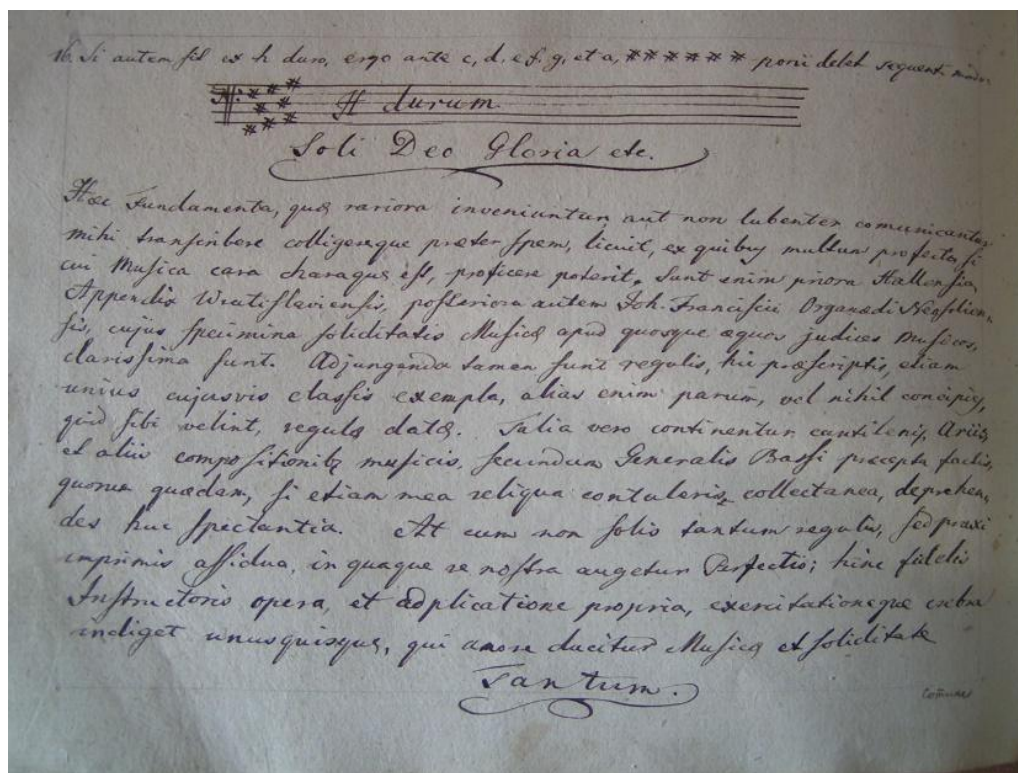 16. Si autem sit ex h duro, ergo ante c, d, e, f, g, et a, ※※※※※※ poni debet sequenti modo
H durum
Soli Deo Gloria etc.
Hæc Fundamenta, quæ rariora inveniuntur, aut non lubenter comunicantur
mihi transcribere colligereque præter spem, licuit, ex quibus multum profectus, si
cui Musica cara charaque est, proficere poterit. Sunt enim priora Hallensia,
Appendix Wratislaviensis, posteriora autem Joh. Francisci Organædi Neosolien-
sis, cujus specimina soliditatis Musicæ apud quosque æquos judices musicos,
clarissima sunt. Adjungenda tamen sunt regulis, hic præscriptis, etiam
unius cujusvis classis exempla, alias enim parum, vel nihil concipies,
quid sibi velint, regulæ datæ. Talia vero continentur cantilenis, Ariis,
et aliis compositionibq musicis, secundum Generalis Bassi præcepta factis,
quorum quædam, si etiam mea reliqua contuleris, collectanea, deprehen-
des huc spectantia. At cum non solis tantum regulis, sed praxi
imprimis assidua, in quaque re nostra augetur Perfectio; hinc fidelis
Instructoris opera, et adplicatione propria, exercitationeque crebra
indiget unusquisque, qui amore ducitur Musicæ et soliditate
Tantum.
Com̃unes